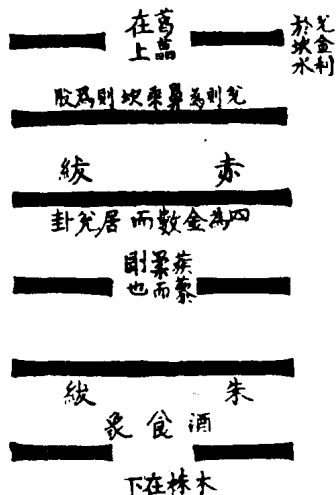 兌金利
於坎水
葛藟
在上
兌則為鼻乘坎則為股
赤紱
四為金數而居兌卦
蒺藜
柔而
剛也
朱紱
酒食象
木株在下